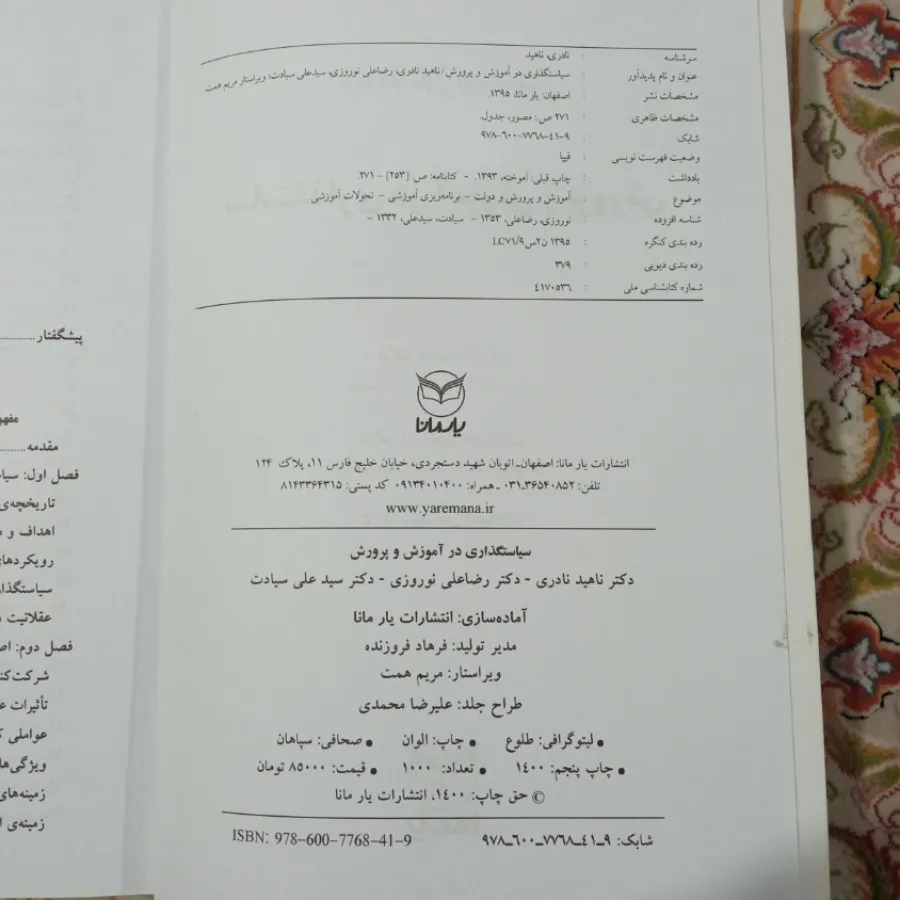 سرشناسه : نادری، ناهید
عنوان و نام پدیدآور : سیاستگذاری در آموزش و پرورش/ ناهید نادری، رضاعلی نوروزی، سیدعلی سیادت؛ ویراستار مریم همت
مشخصات نشر : اصفهان: یار مانا، ۱۳۹۵.
مشخصات ظاهری : ۲۷۱ ص.: مصور، جدول.
شابک : ۹۷۸-۶۰۰-۷۷۶۸-۴۱-۹
وضعیت فهرست نویسی : فیپا
یادداشت : چاپ قبلی: آموخته، ۱۳۹۳. - کتابنامه: ص [۲۵۳] - ۲۷۱.
موضوع : آموزش و پرورش و دولت - برنامه‌ریزی آموزشی - تحولات آموزشی
شناسه افزوده : نوروزی، رضاعلی، ۱۳۵۳ - سیادت، سیدعلی، ۱۳۳۲ -
رده بندی کنگره : ۱۳۹۵ ن۲س۹/LC۷۱
رده بندی دیویی : ۳۷۹
شماره کتابشناسی ملی : ۴۱۷۰۵۳۶
یارمانا
انتشارات یار مانا: اصفهان- اتوبان شهید دستجردی، خیابان خلیج فارس ۱۱، پلاک ۱۲۴
تلفن: ۳۶۵۴۰۸۵۲-۰۳۱ - همراه: ۰۹۱۳۴۰۱۰۴۰۰ کد پستی: ۸۱۴۳۳۶۴۳۱۵
www.yaremana.ir
سیاستگذاری در آموزش و پرورش
دکتر ناهید نادری - دکتر رضاعلی نوروزی - دکتر سید علی سیادت
آماده‌سازی: انتشارات یار مانا
مدیر تولید: فرهاد فروزنده
ویراستار: مریم همت
طراح جلد: علیرضا محمدی
● لیتوگرافی: طلوع ● چاپ: الوان ● صحافی: سپاهان
● چاپ پنجم: ۱۴۰۰ ● تعداد: ۱۰۰۰ ● قیمت: ۸۵۰۰۰ تومان
© حق چاپ: ۱۴۰۰، انتشارات یار مانا
شابک: ۹-۴۱-۷۷۶۸-۶۰۰-۹۷۸ ISBN: 978-600-7768-41-9
پیشگفتار
مقدمه
فصل اول:
تاریخچه‌ی
اهداف و
رویکردهای
سیاستگذار
عقلانیت
فصل دوم:
تأثیرات
عواملی
زمینه‌های
زمینه‌ی